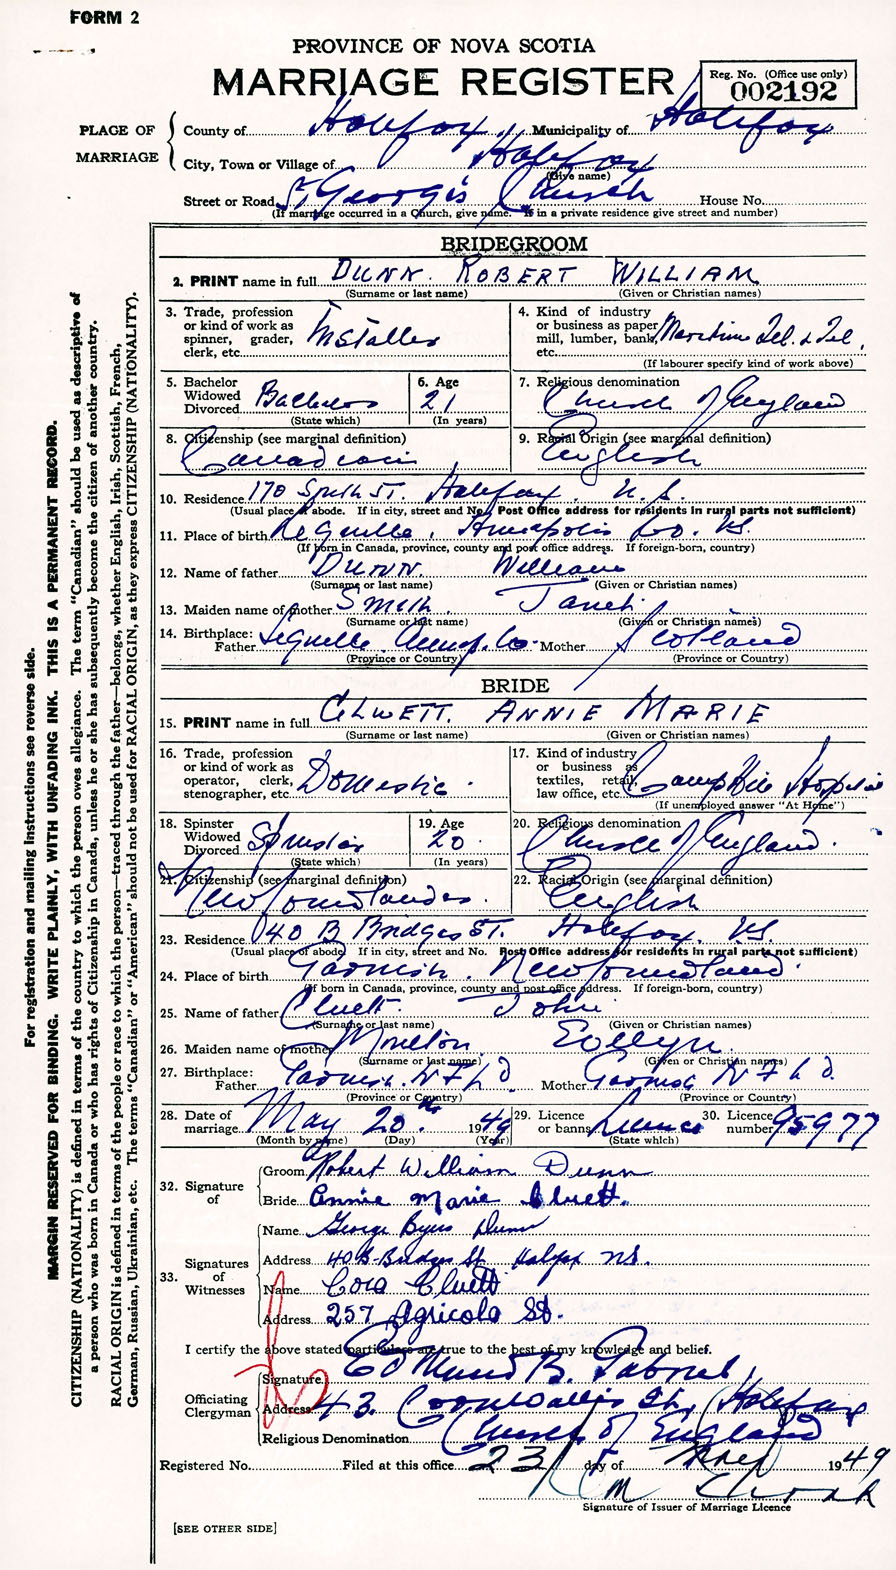 FORM 2
PROVINCE OF NOVA SCOTIA
MARRIAGE REGISTER
Reg. No. (Office use only)
002192
PLAGE OF MARRIAGE
County of Halifax Municipality of Halifax
City, Town or Village of Halifax
(Give name)
Street or Road St Georges Church House No.
(If marriage occurred in a Church, give name. If in a private residence give street and number)
BRIDEGROOM
2. PRINT name in full DUNN. ROBERT WILLIAM
(Surname or last name) (Given or Christian names)
3. Trade, profession or kind of work as spinner, grader, clerk, etc. Installer
4. Kind of industry or business as paper mill, lumber, bank, etc. Maritime Tel. & Tel.
(If labourer specify kind of work above)
5. Bachelor Widowed Divorced Bachelor
(State which)
6. Age 21
(In years)
7. Religious denomination Church of England
8. Citizenship (see marginal definition) Canadian
9. Racial Origin (see marginal definition) English
10. Residence 170 South St. Halifax. N.S.
(Usual place of abode. If in city, street and No. Post Office address for residents in rural parts not sufficient)
11. Place of birth Lequille, Annapolis Co. NS.
(If born in Canada, province, county and post office address. If foreign-born, country)
12. Name of father DUNN. William
(Surname or last name) (Given or Christian names)
13. Maiden name of mother Smith. Janet.
(Surname or last name) (Given or Christian names)
14. Birthplace: Father Lequille Annap. Co. Mother Scotland
(Province or Country) (Province or Country)
BRIDE
15. PRINT name in full CLUETT. ANNIE MARIE
(Surname or last name) (Given or Christian names)
16. Trade, profession or kind of work as operator, clerk, stenographer, etc. Domestic.
17. Kind of industry or business as textiles, retail, law office, etc. Camp Hill Hospital
(If unemployed answer "At Home")
18. Spinster Widowed Divorced Spinster
(State which)
19. Age 20.
(In years)
20. Religious denomination Church of England.
21. Citizenship (see marginal definition) Newfoundlander.
22. Racial Origin (see marginal definition) English
23. Residence 40 B Bridges St. Halifax. NS.
(Usual place of abode. If in city, street and No. Post Office address for residents in rural parts not sufficient)
24. Place of birth Garnish. Newfoundland.
(If born in Canada, province, county and post office address. If foreign-born, country)
25. Name of father Cluett. John
(Surname or last name) (Given or Christian names)
26. Maiden name of mother Moulton Evelyn.
(Surname or last name) (Given or Christian names)
27. Birthplace: Father Garnish. NFLD Mother Garnish NFLD.
(Province or Country) (Province or Country)
28. Date of marriage May 20th. 1949
(Month by name) (Day) (Year)
29. Licence or banns Licence
(State which)
30. Licence number 95977
32. Signature of
Groom Robert William Dunn
Bride Annie Marie Cluett.
33. Signatures of Witnesses
Name George Byers Dunn
Address 40 B-Bridges St. Halifax NS.
Name Cora Cluett
Address 257 Agricola St.
I certify the above stated particulars are true to the best of my knowledge and belief.
Officiating Clergyman
Signature Edmund B.
Address 43. Cornwallis St, Halifax
Religious Denomination Church of England
Registered No. Filed at this office 23 day of May 1949
Signature of Issuer of Marriage Licence
[SEE OTHER SIDE]
For registration and mailing instructions see reverse side.
MARGIN RESERVED FOR BINDING. WRITE PLAINLY, WITH UNFADING INK. THIS IS A PERMANENT RECORD.
CITIZENSHIP (NATIONALITY) is defined in terms of the country to which the person owes allegiance. The term "Canadian" should be used as descriptive of
a person who was born in Canada or who has rights of Citizenship in Canada, unless he or she has subsequently become the citizen of another country.
RACIAL ORIGIN is defined in terms of the people or race to which the person—traced through the father—belongs, whether English, Irish, Scottish, French,
German, Russian, Ukrainian, etc. The terms "Canadian" or "American" should not be used for RACIAL ORIGIN, as they express CITIZENSHIP (NATIONALITY).